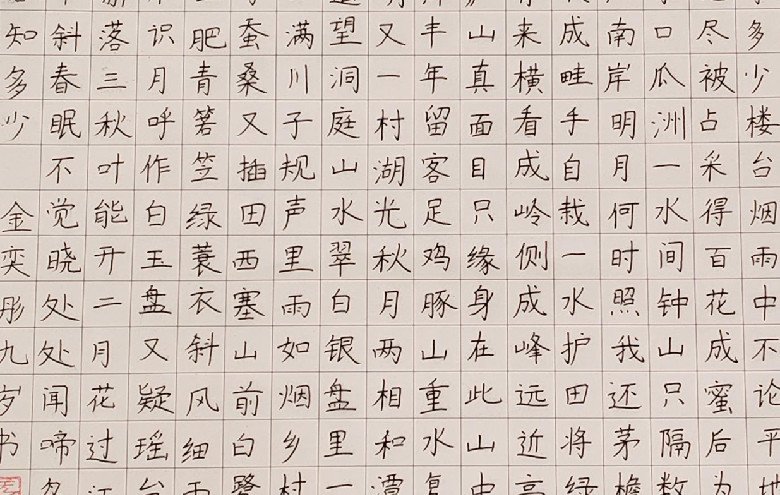 多少楼台烟雨中不论平地
尽被占采得百花成蜜后为
口瓜洲一水间钟山只隔数
南岸明月何时照我还茅檐
成畦手自栽一水护田将绿
来横看成岭侧成峰远近高
山真面目只缘身在此山中
丰年留客足鸡豚山重水复
又一村湖光秋月两相和潭
望洞庭山水翠白银盘里一
满川子规声里雨如烟乡村
蚕桑又插田西塞山前白鹭
肥青箬笠绿蓑衣斜风细雨
识月呼作白玉盘又疑瑶台
落三秋叶能开二月花过江
斜春眠不觉晓处处闻啼鸟
知多少 金奕彤九岁书